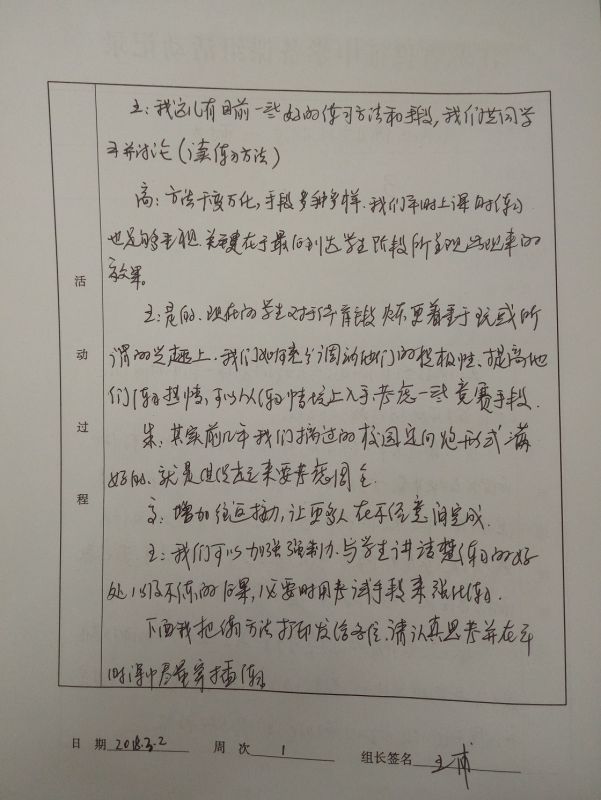 王：我这儿有目前一些好的练习方法和手段，我们共同学
习并讨论（读练习方法）
高：方法千变万化，手段多种多样．我们平时上课时练习
也足够重视．关键在于最后到达学生阶段所呈现出现来的
效果。
王：是的．现在的学生对于体育锻炼不更着重于玩或所
谓的兴趣上．我们如何充分调动他们的积极性、提高他
们练习热情，可以从练习情境上入手，考虑一些竞赛手段．
朱：其实前几年我们搞过的校园定向跑形式满
好的．就是组织起来要考虑周全．
高：增加往返接力，让更多人在不经意间完成．
王：我们可以加强强制力．与学生讲清楚练习的好
处以及不练的后果，必要时用考试手段来强化练习．
下面我把练习方法打印发给各位．请认真思考并在平
时课中尽量穿插练习。
活动过程
日 期 2018.3.2 周 次 1 组长签名 王甫